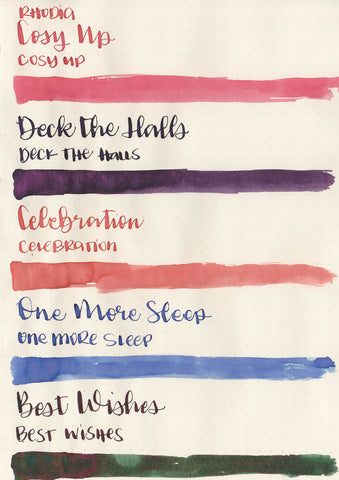 RHODIA
Cosy Up
COSY UP
Deck The Halls
DECK THE HALLS
Celebration
CELEBRATION
One More Sleep
ONE MORE SLEEP
Best Wishes
BEST WISHES